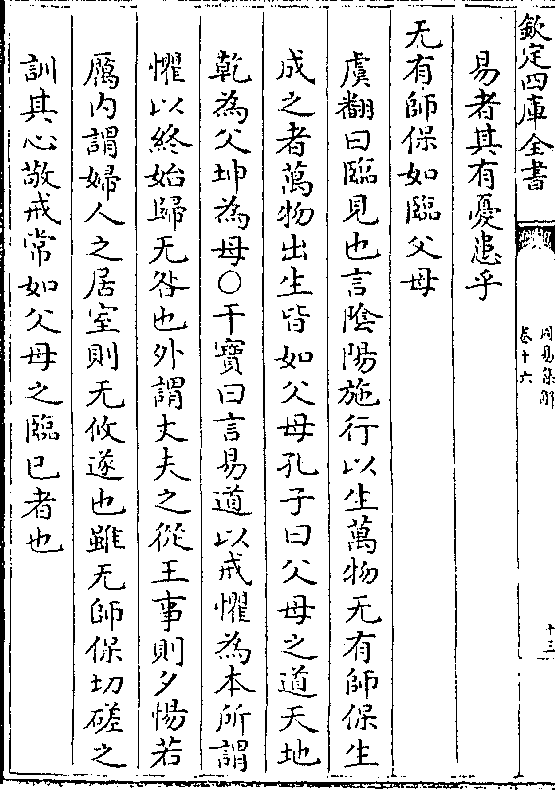 欽定四庫全書
周易集解
卷十六
十三
易者其有憂患乎
无有師保如臨父母
虞翻曰臨見也言陰陽施行以生萬物无有師保生
成之者萬物出生皆如父母孔子曰父母之道天地
乾為父坤為母○干寶曰言易道以戒懼為本所謂
懼以終始歸无咎也外謂丈夫之從王事則夕惕若
厲内謂婦人之居室則无攸遂也雖无師保切磋之
訓其心敬戒常如父母之臨已者也